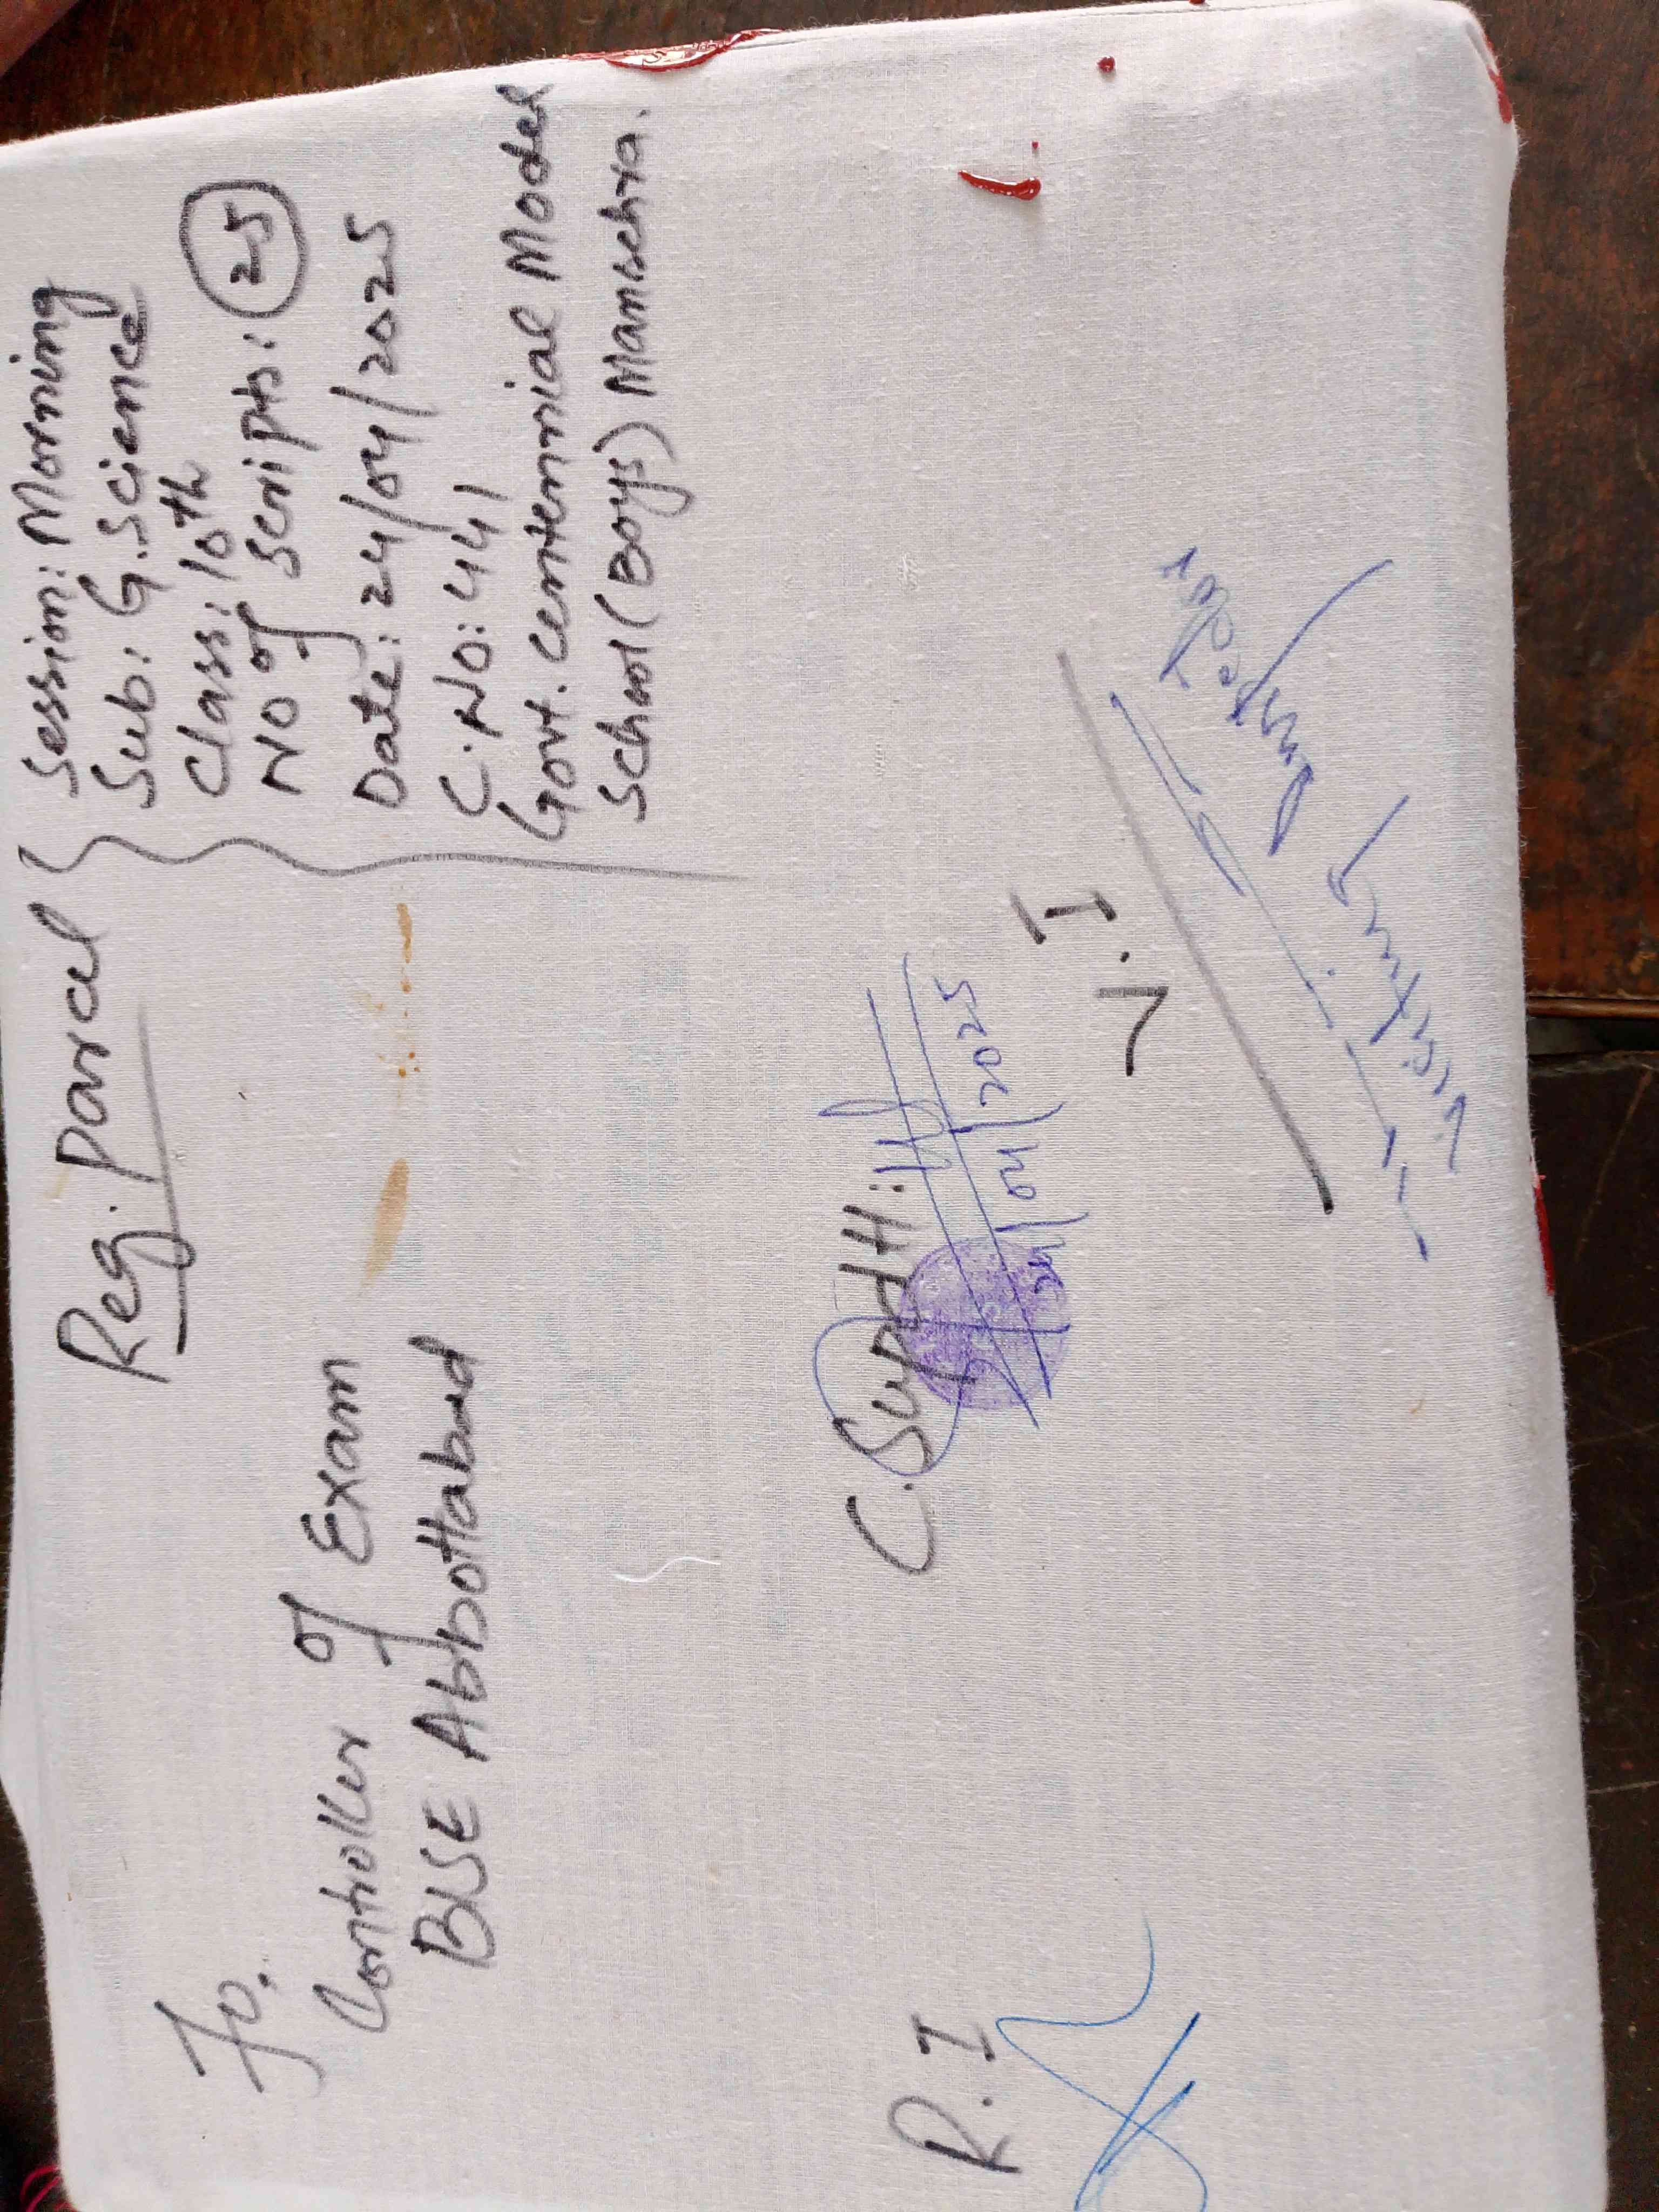 Reg. Parcel
Session: Morning
Sub: G.Science
Class: 10th
No of Scripts: 25
Date: 24/04/2025
C.No: 441
Govt. Centennial Model
School (Boys) Mansehra.
To,
Controller of Exam
BISE Abbottabad
R.I
C. Supdtt:
24/04/2025
V.I